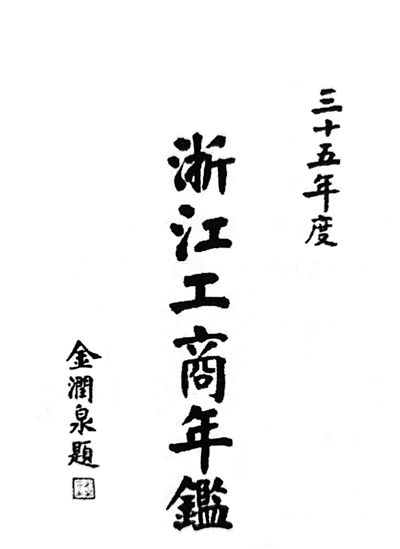 三十五年度
浙江工商年鑑
金潤泉題